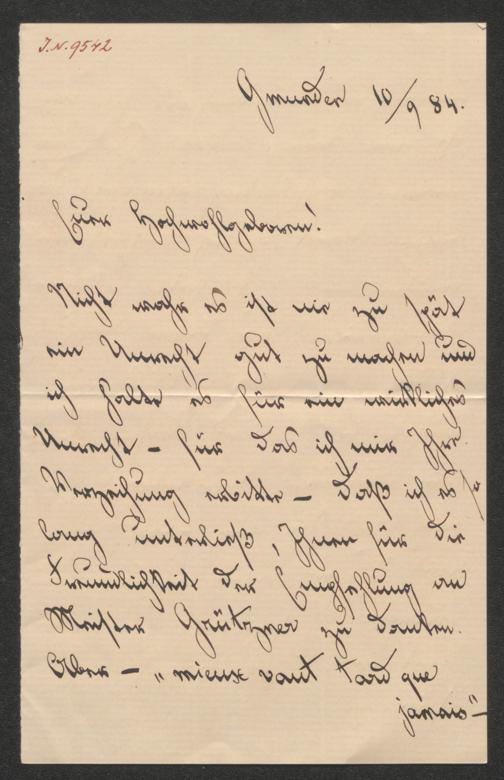 I.N. 9542
Gmunden 10/9 84.
Euer Hochwohlgeboren!
Nicht wahr es ist nie zu spät
ein Unrecht gut zu machen und
ich halte es für ein wirkliches
Unrecht – für das ich mir Ihre
Verzeihung erbitte – daß ich es so
lang unterließ, Ihnen für die
Freundlichkeit der Empfehlung an
Meister Grützner zu danken.
Aber – „mieux vaut tard que
jamais" –